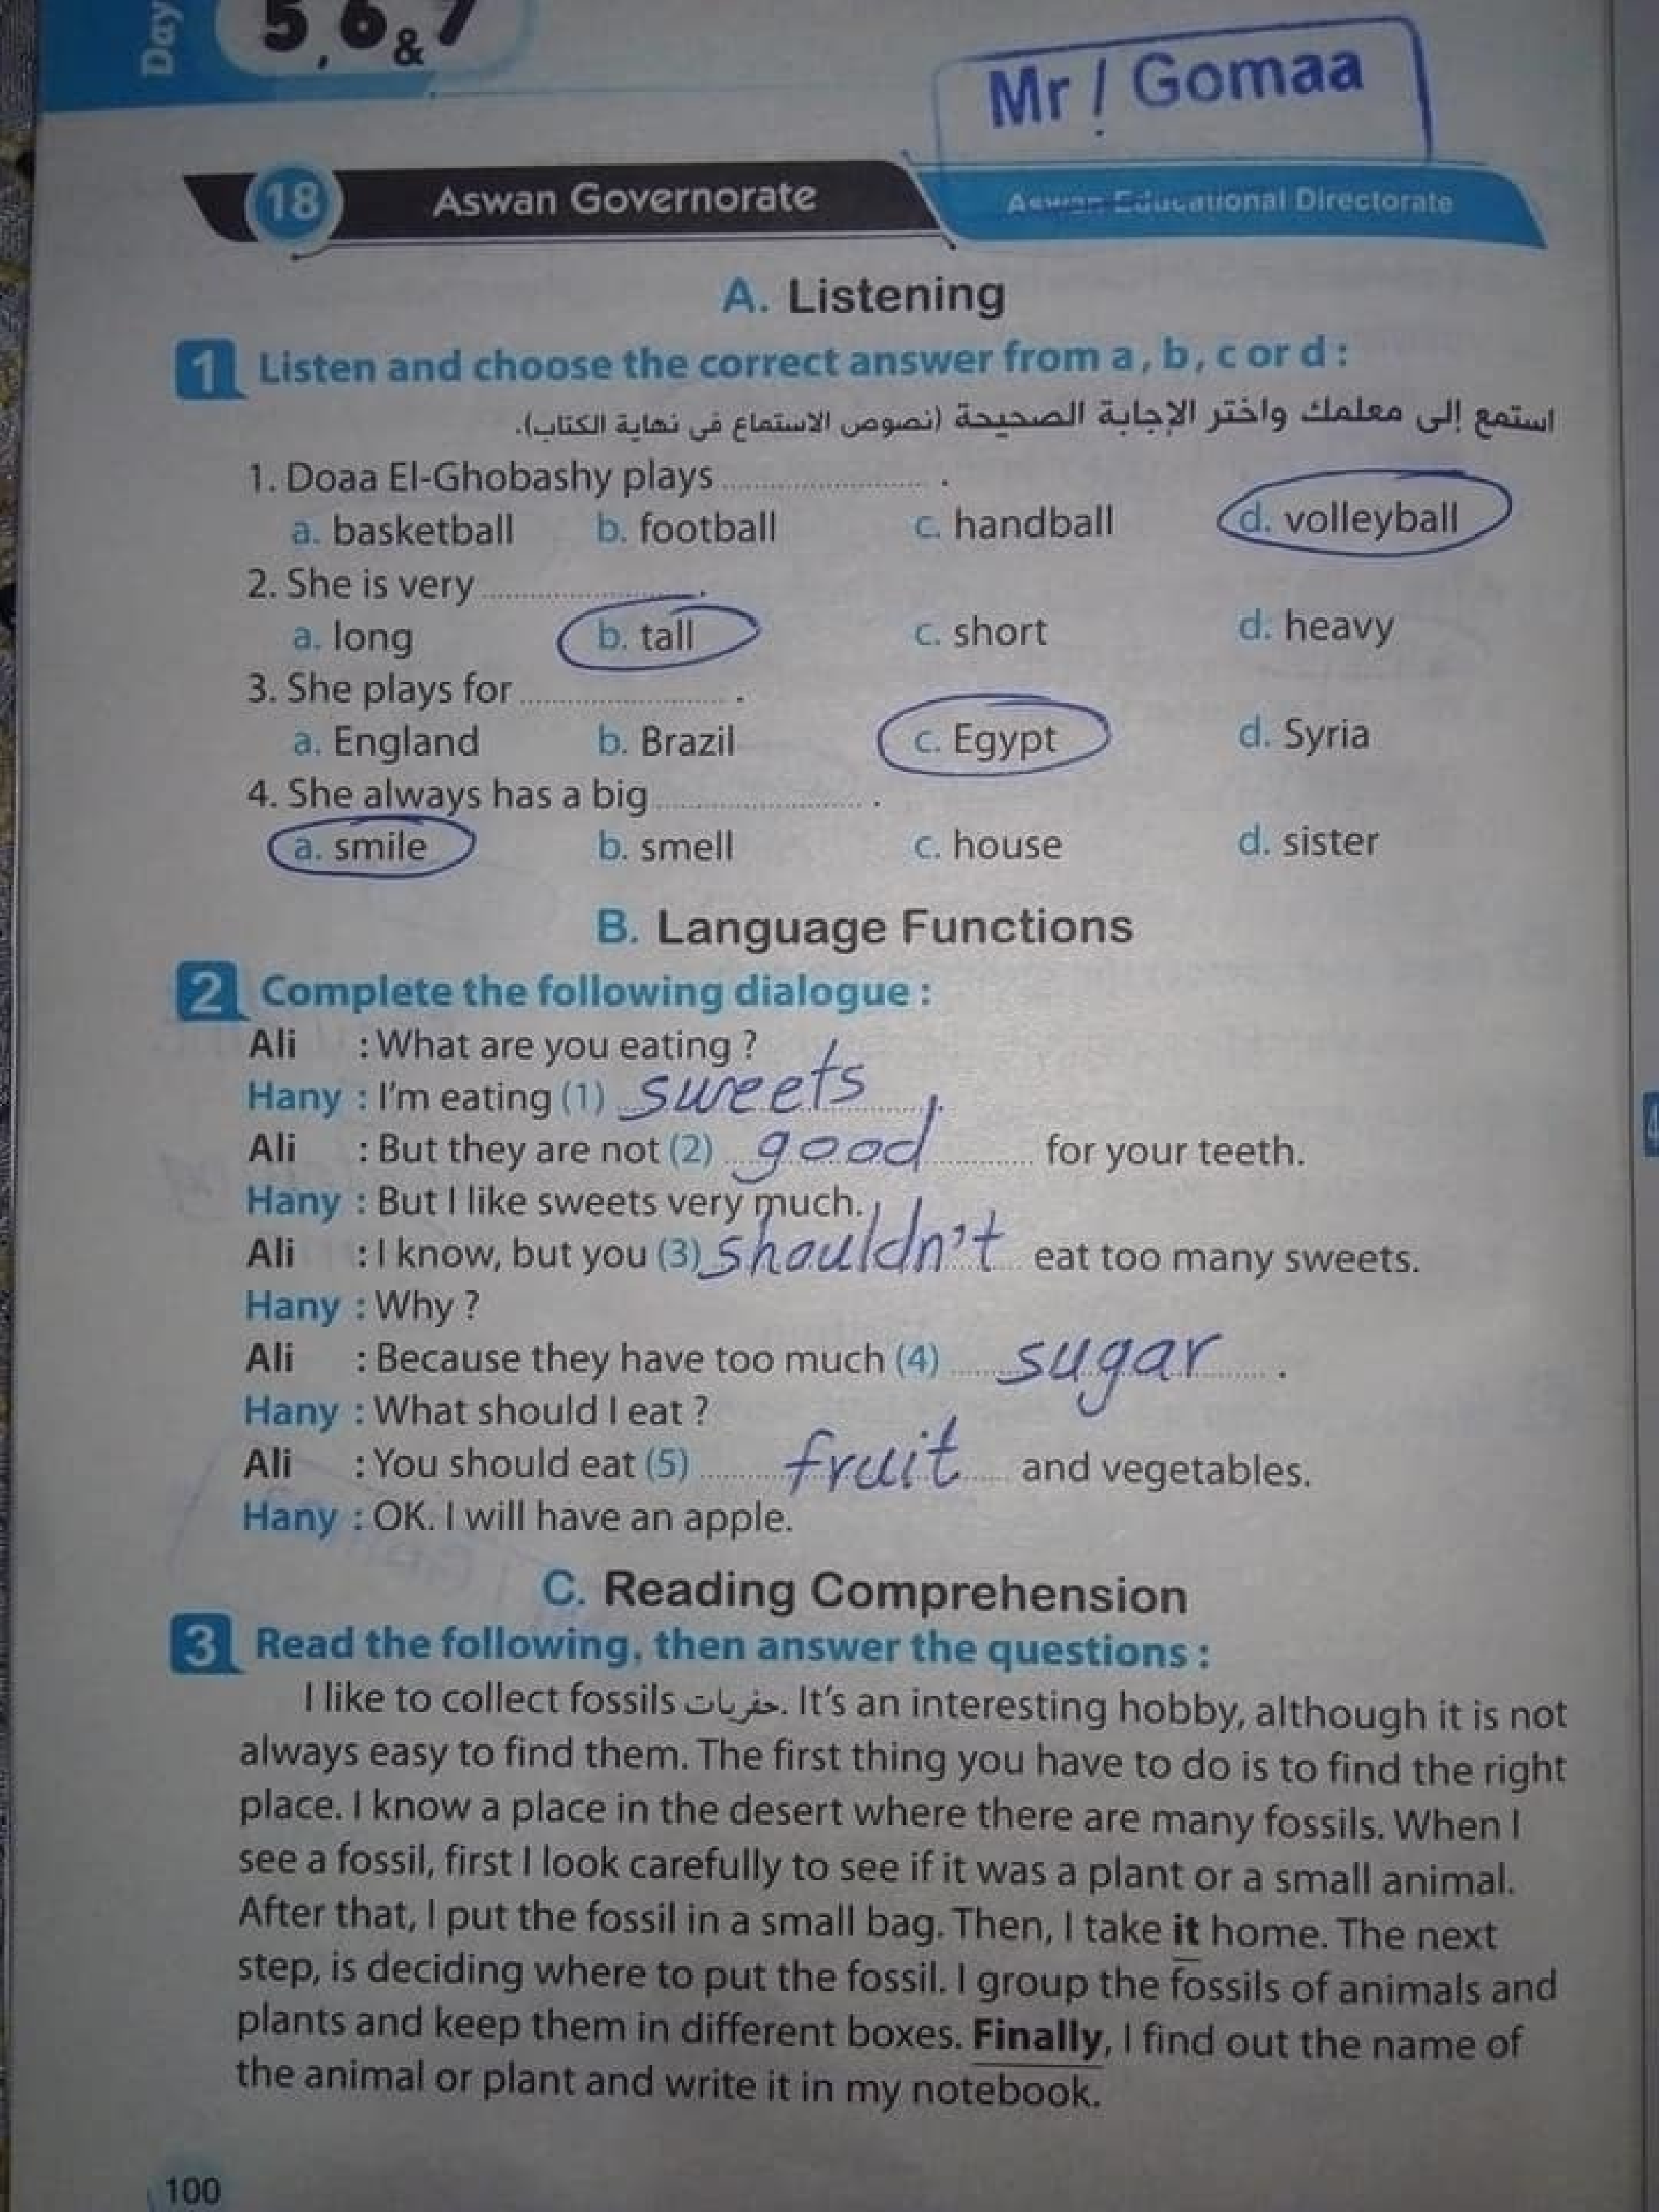 Day
5, 6 & 7
Mr / Gomaa
18 Aswan Governorate Aswan Educational Directorate
A. Listening
1 Listen and choose the correct answer from a , b , c or d :
استمع إلى معلمك واختر الإجابة الصحيحة (نصوص الاستماع فى نهاية الكتاب).
1. Doaa El-Ghobashy plays .................... .
a. basketball b. football c. handball d. volleyball
2. She is very .................... .
a. long b. tall c. short d. heavy
3. She plays for .................... .
a. England b. Brazil c. Egypt d. Syria
4. She always has a big .................... .
a. smile b. smell c. house d. sister
B. Language Functions
2 Complete the following dialogue :
Ali : What are you eating ?
Hany : I'm eating (1) sweets .
Ali : But they are not (2) good for your teeth.
Hany : But I like sweets very much.
Ali : I know, but you (3) shouldn't eat too many sweets.
Hany : Why ?
Ali : Because they have too much (4) sugar .
Hany : What should I eat ?
Ali : You should eat (5) fruit and vegetables.
Hany : OK. I will have an apple.
C. Reading Comprehension
3 Read the following, then answer the questions :
I like to collect fossils حفريات. It's an interesting hobby, although it is not
always easy to find them. The first thing you have to do is to find the right
place. I know a place in the desert where there are many fossils. When I
see a fossil, first I look carefully to see if it was a plant or a small animal.
After that, I put the fossil in a small bag. Then, I take it home. The next
step, is deciding where to put the fossil. I group the fossils of animals and
plants and keep them in different boxes. Finally, I find out the name of
the animal or plant and write it in my notebook.
100
4